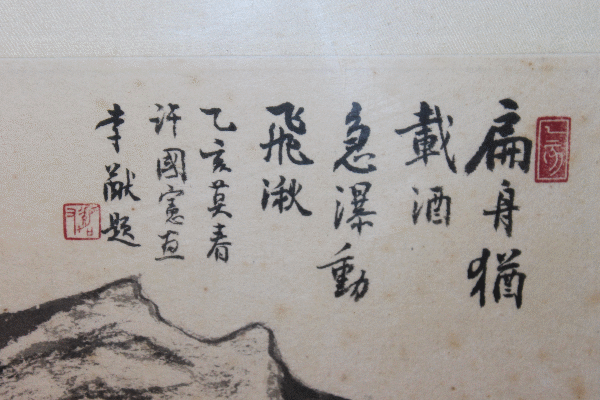 扁舟猶
載酒
急瀑動
飛湫
乙亥莫春
許國憲畫
李猷題